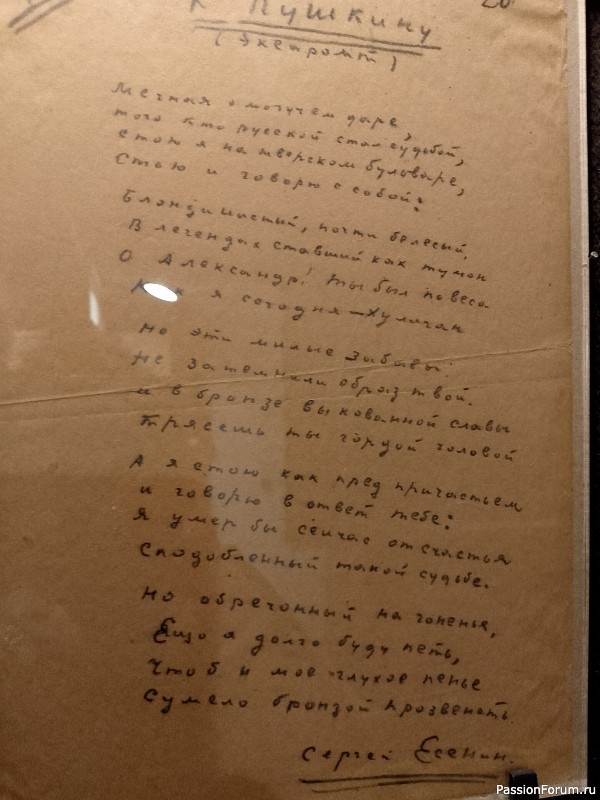 20
К Пушкину
(Экспромт)
Мечтая о могучем даре,
того кто русской стал судьбой,
стою я на тверском бульваре,
Стою и говорю с собой:
Блондинистый, почти белесый,
В легендах ставший как туман
О Александр! ты был повеса
Как я сегодня – Хулиган
Но эти милые забавы
Не затемнили образ твой.
и в бронзе выкованной славы
трясешь ты гордой головой
А я стою как пред причастьем
и говорю в ответ тебе:
Я умер бы сейчас от счастья
Сподобленный такой судьбе.
Но обречонный на гоненья,
Ещо я долго буду петь,
Чтоб и мое глухое пенье
Сумело бронзой прозвенеть.
Сергей Есенин.
PassionForum.ru